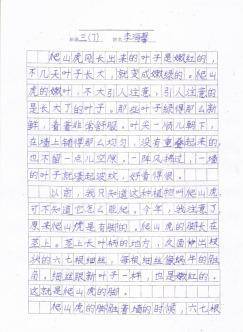 班级三(7) 姓名李海馨
爬山虎刚长出来的叶子是嫩红的，
不几天叶子长大，就变成嫩绿的。爬山
虎的嫩叶，不大引人注意，引人注意的
是长大了的叶子。那些叶子绿得那么新
鲜，看着非常舒服。叶尖一顺儿朝下，
在墙上铺得那么均匀，没有重叠起来的，
也不留一点儿空隙。一阵风拂过，一墙
的叶子就漾起波纹，好看得很。
以前，我只知道这种植物叫爬山虎，
可不知道它怎么能爬。今年，我注意了，
原来爬山虎是有脚的。爬山虎的脚长在
茎上。茎上长叶柄的地方，反面伸出枝
状的六七根细丝，每根细丝像蜗牛的触
角。细丝跟新叶子一样，也是嫩红的。
这就是爬山虎的脚。
爬山虎的脚触着墙的时候，六七根